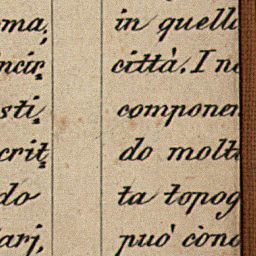 oma, in quell
ncir città. I n
sti componen
crit do molt
do ta topog
arj, può cono